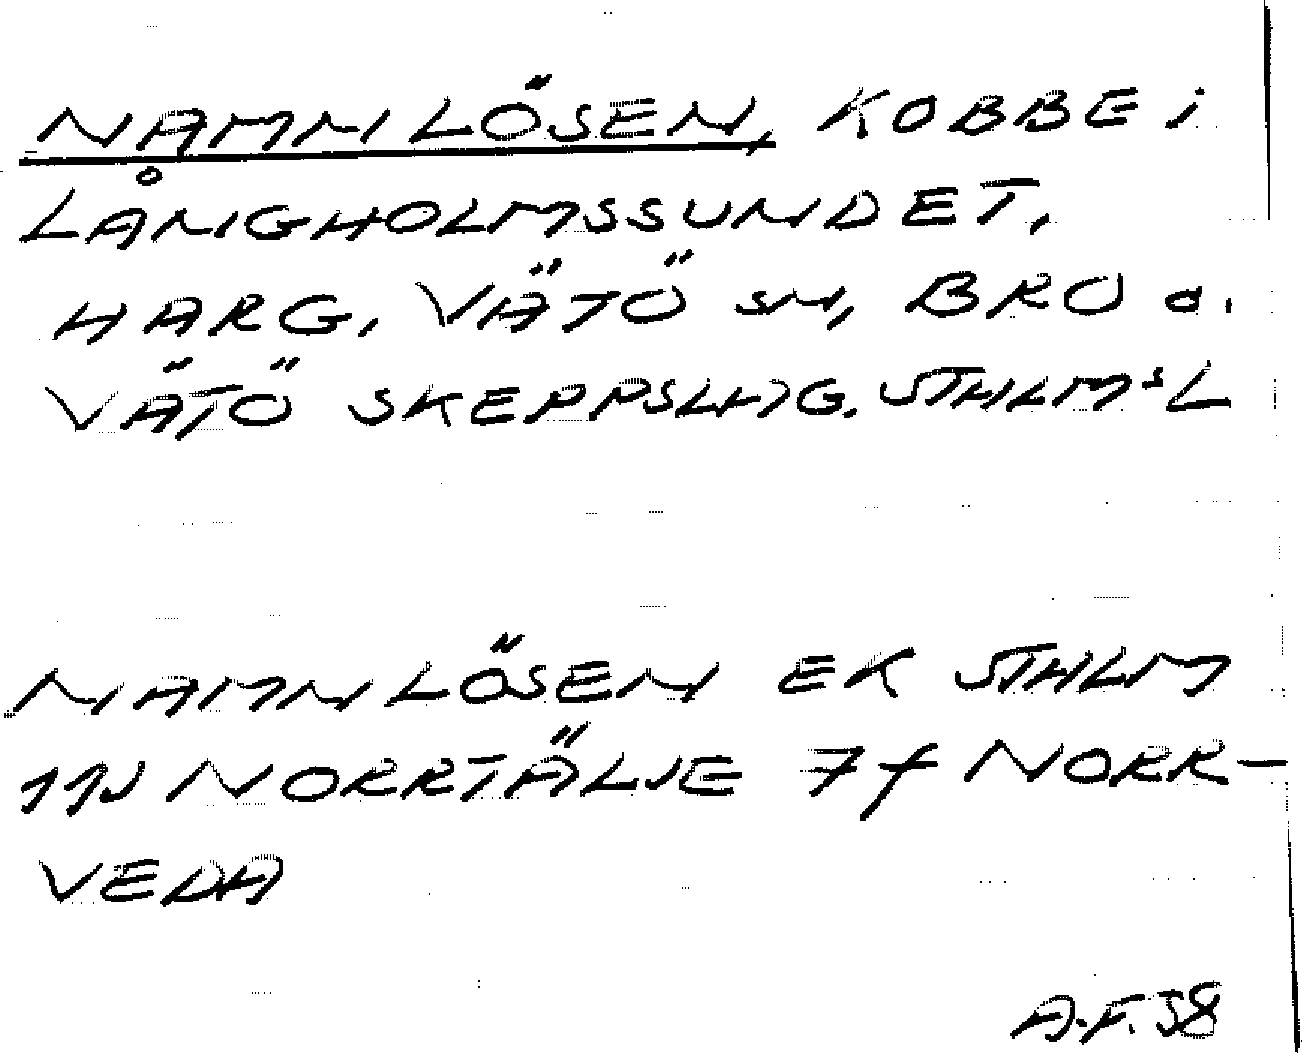 NAMNLÖSEN, KOBBE i
LÅNGHOLMSSUNDET,
HARG, VÄTÖ SN, BRO O.
VÄTÖ SKEPPSLAG. STHLMS L
NAMNLÖSEN EK STHLM
11J NORRTÄLJE 7f NORR-
VEDA
A.F. 58